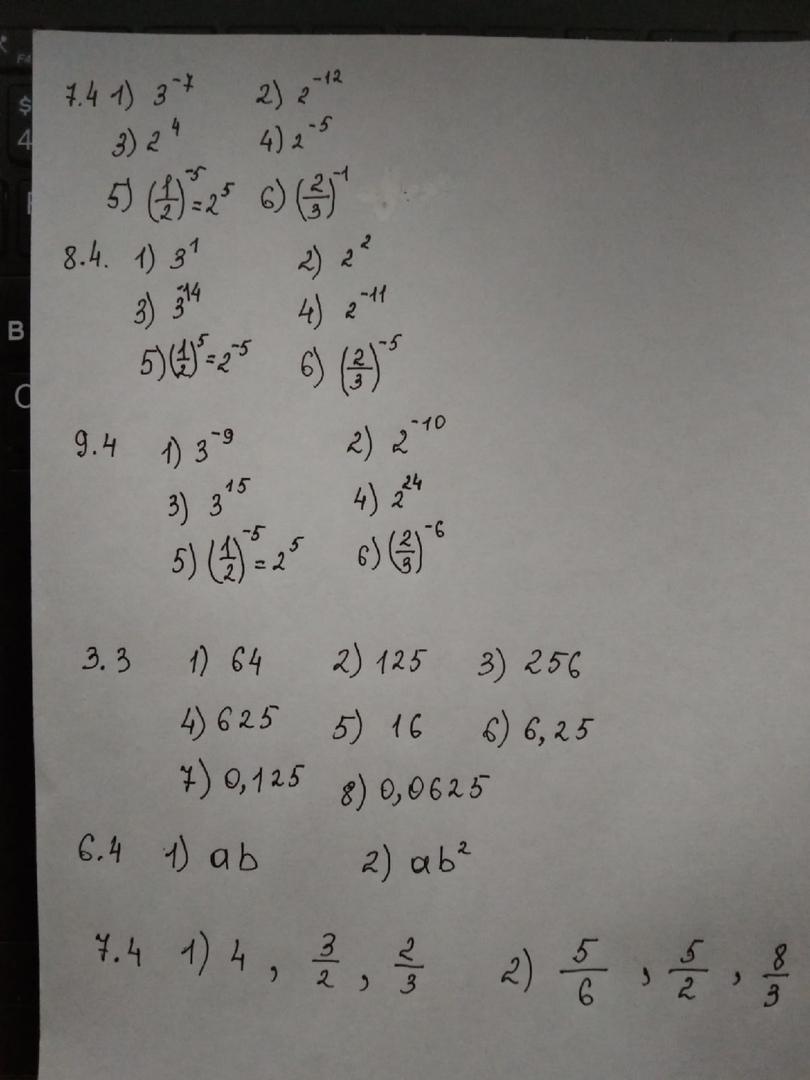 7.4 1) 3⁻⁷ 2) 2⁻¹²
3) 2⁴ 4) 2⁻⁵
5) (1/2)⁻⁵ = 2⁵ 6) (2/3)⁻¹
8.4. 1) 3¹ 2) 2²
3) 3⁻¹⁴ 4) 2⁻¹¹
5) (1/2)⁵ = 2⁻⁵ 6) (2/3)⁻⁵
9.4 1) 3⁻⁹ 2) 2⁻¹⁰
3) 3¹⁵ 4) 2²⁴
5) (1/2)⁻⁵ = 2⁵ 6) (2/3)⁻⁶
3.3 1) 64 2) 125 3) 256
4) 625 5) 16 6) 6,25
7) 0,125 8) 0,0625
6.4 1) ab 2) ab²
7.4 1) 4, 3/2, 2/3 2) 5/6, 5/2, 8/3